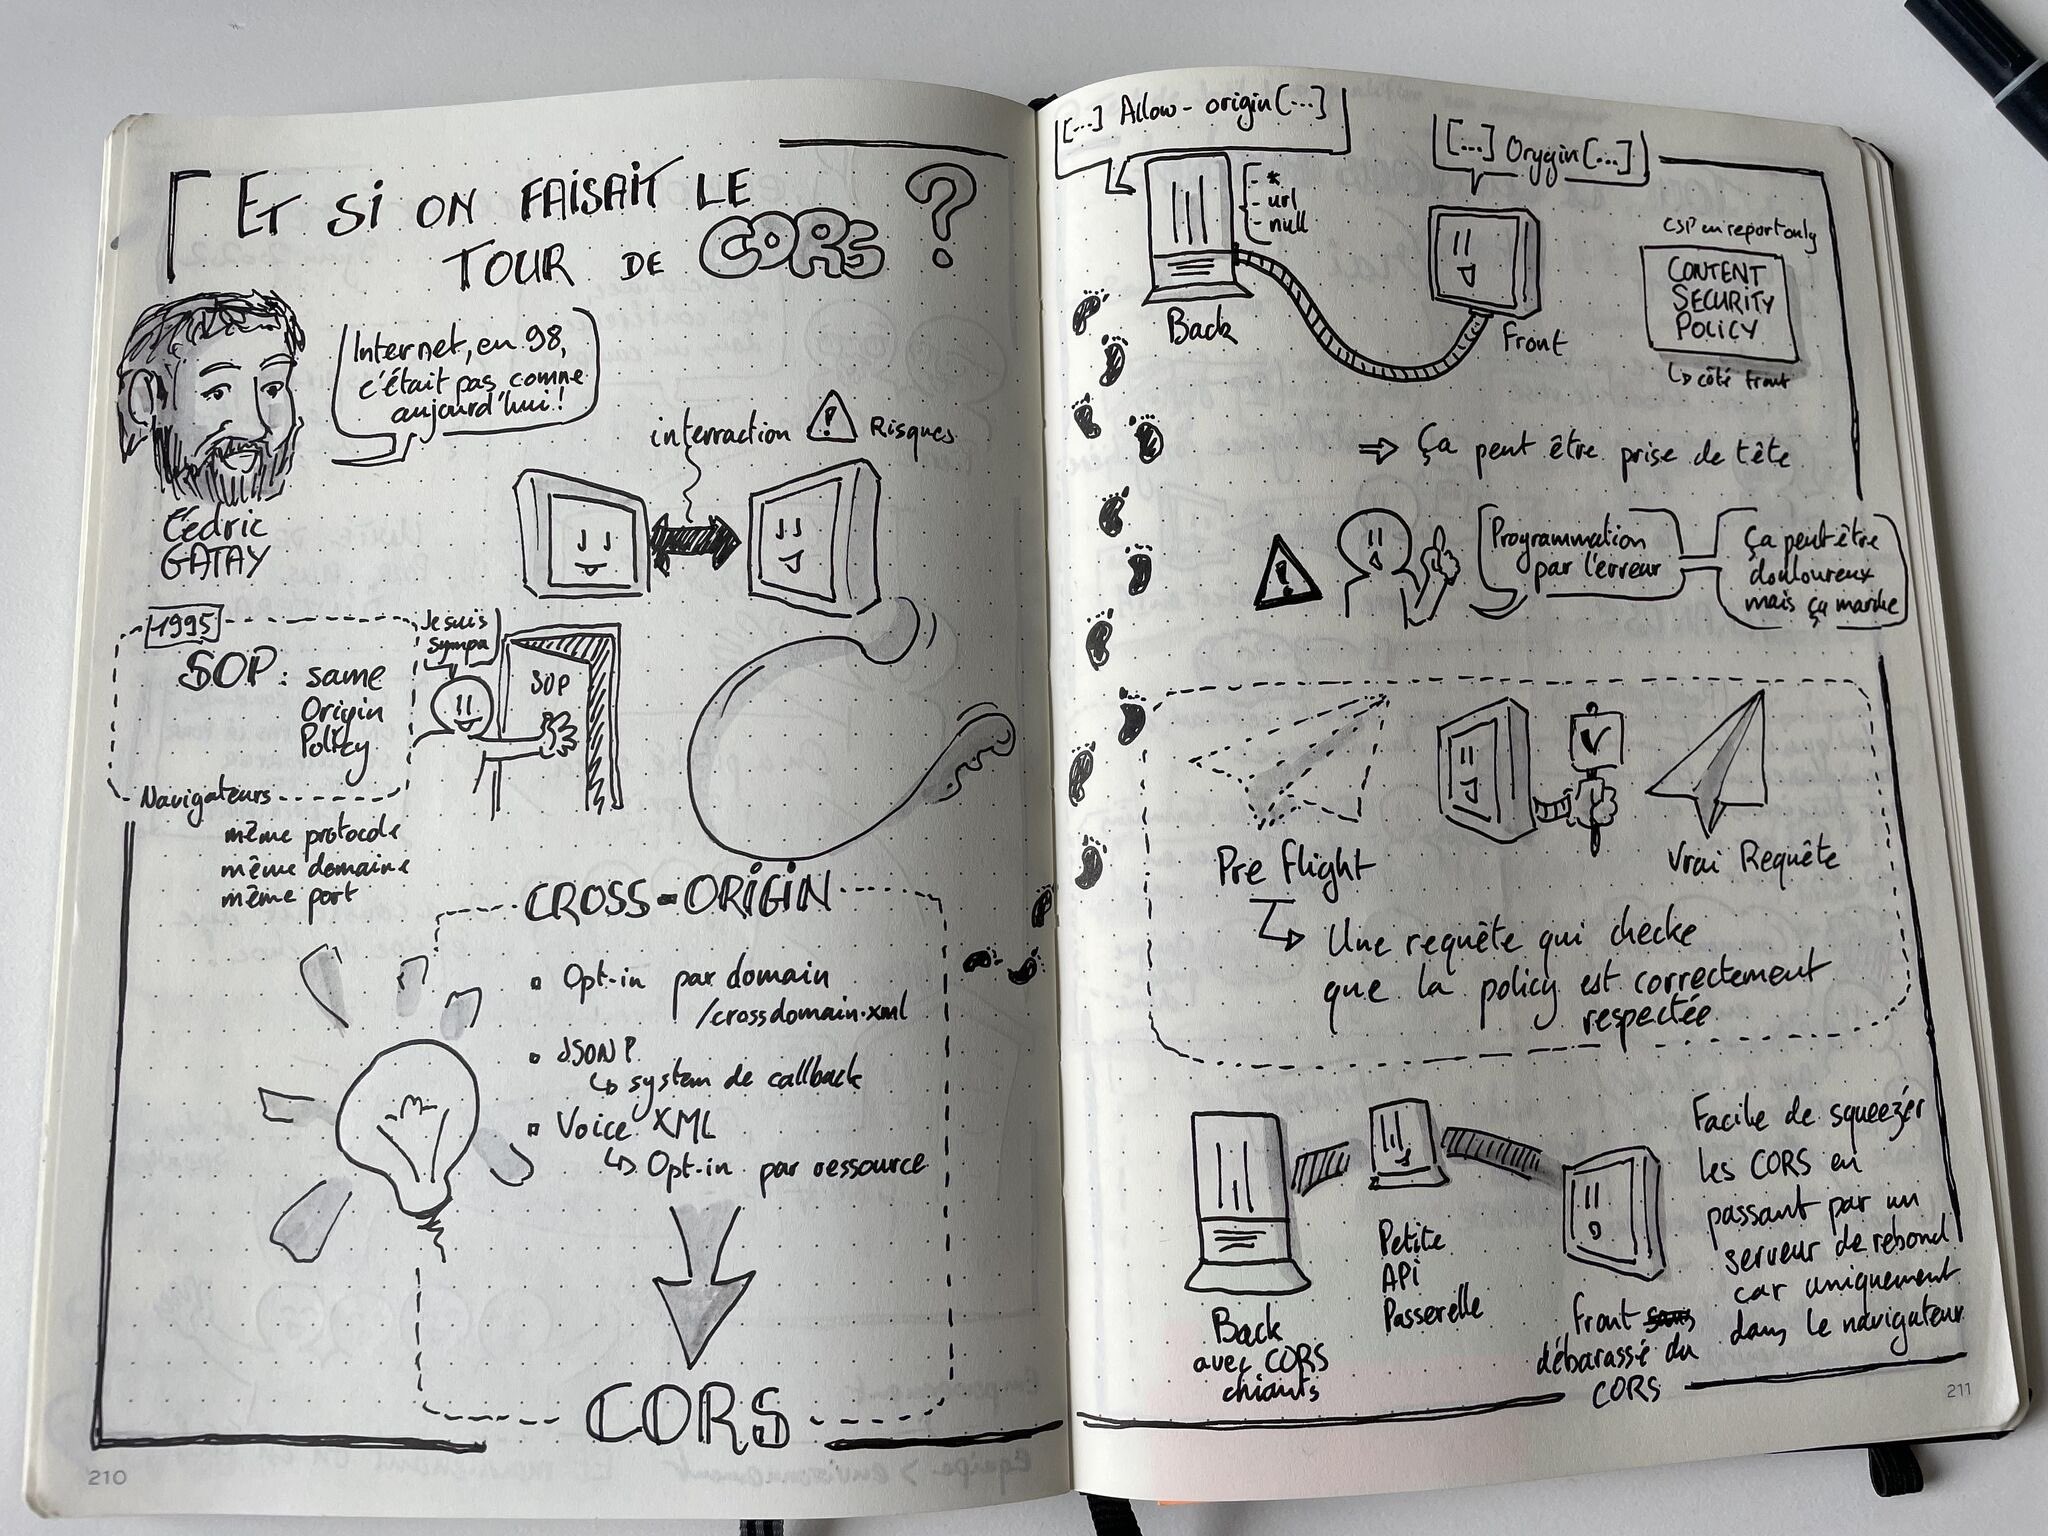 ET SI ON FAISAIT LE
TOUR DE CORS ?
Internet, en 98,
c'était pas comme
aujourd'hui!
Cédric
GATAY
interraction ! Risques
1995
SOP: same
Origin
Policy
Navigateurs
même protocole
même domaine
même port
Je suis
sympa
SOP
CROSS-ORIGIN
Opt-in par domain
/crossdomain.xml
JSON P
↳ system de callback
Voice XML
↳ Opt-in par ressource
CORS
210
[...] Allow-origin [...]
- *
- url
- null
Back
[...] Orygin [...]
Front
CSP en report only
CONTENT
SECURITY
POLICY
↳ côté front
⇒ Ça peut être prise de tête
!
Programmation
par l'erreur
Ça peut être
douloureux
mais ça marche
Pre flight
Vrai Requête
↳ Une requête qui checke
que la policy est correctement
respectée
Back
avec CORS
chiants
Petite
API
Passerelle
Front sans
débarassé du
CORS
Facile de squeezer
les CORS en
passant par un
serveur de rebond
car uniquement
dans le navigateur
211